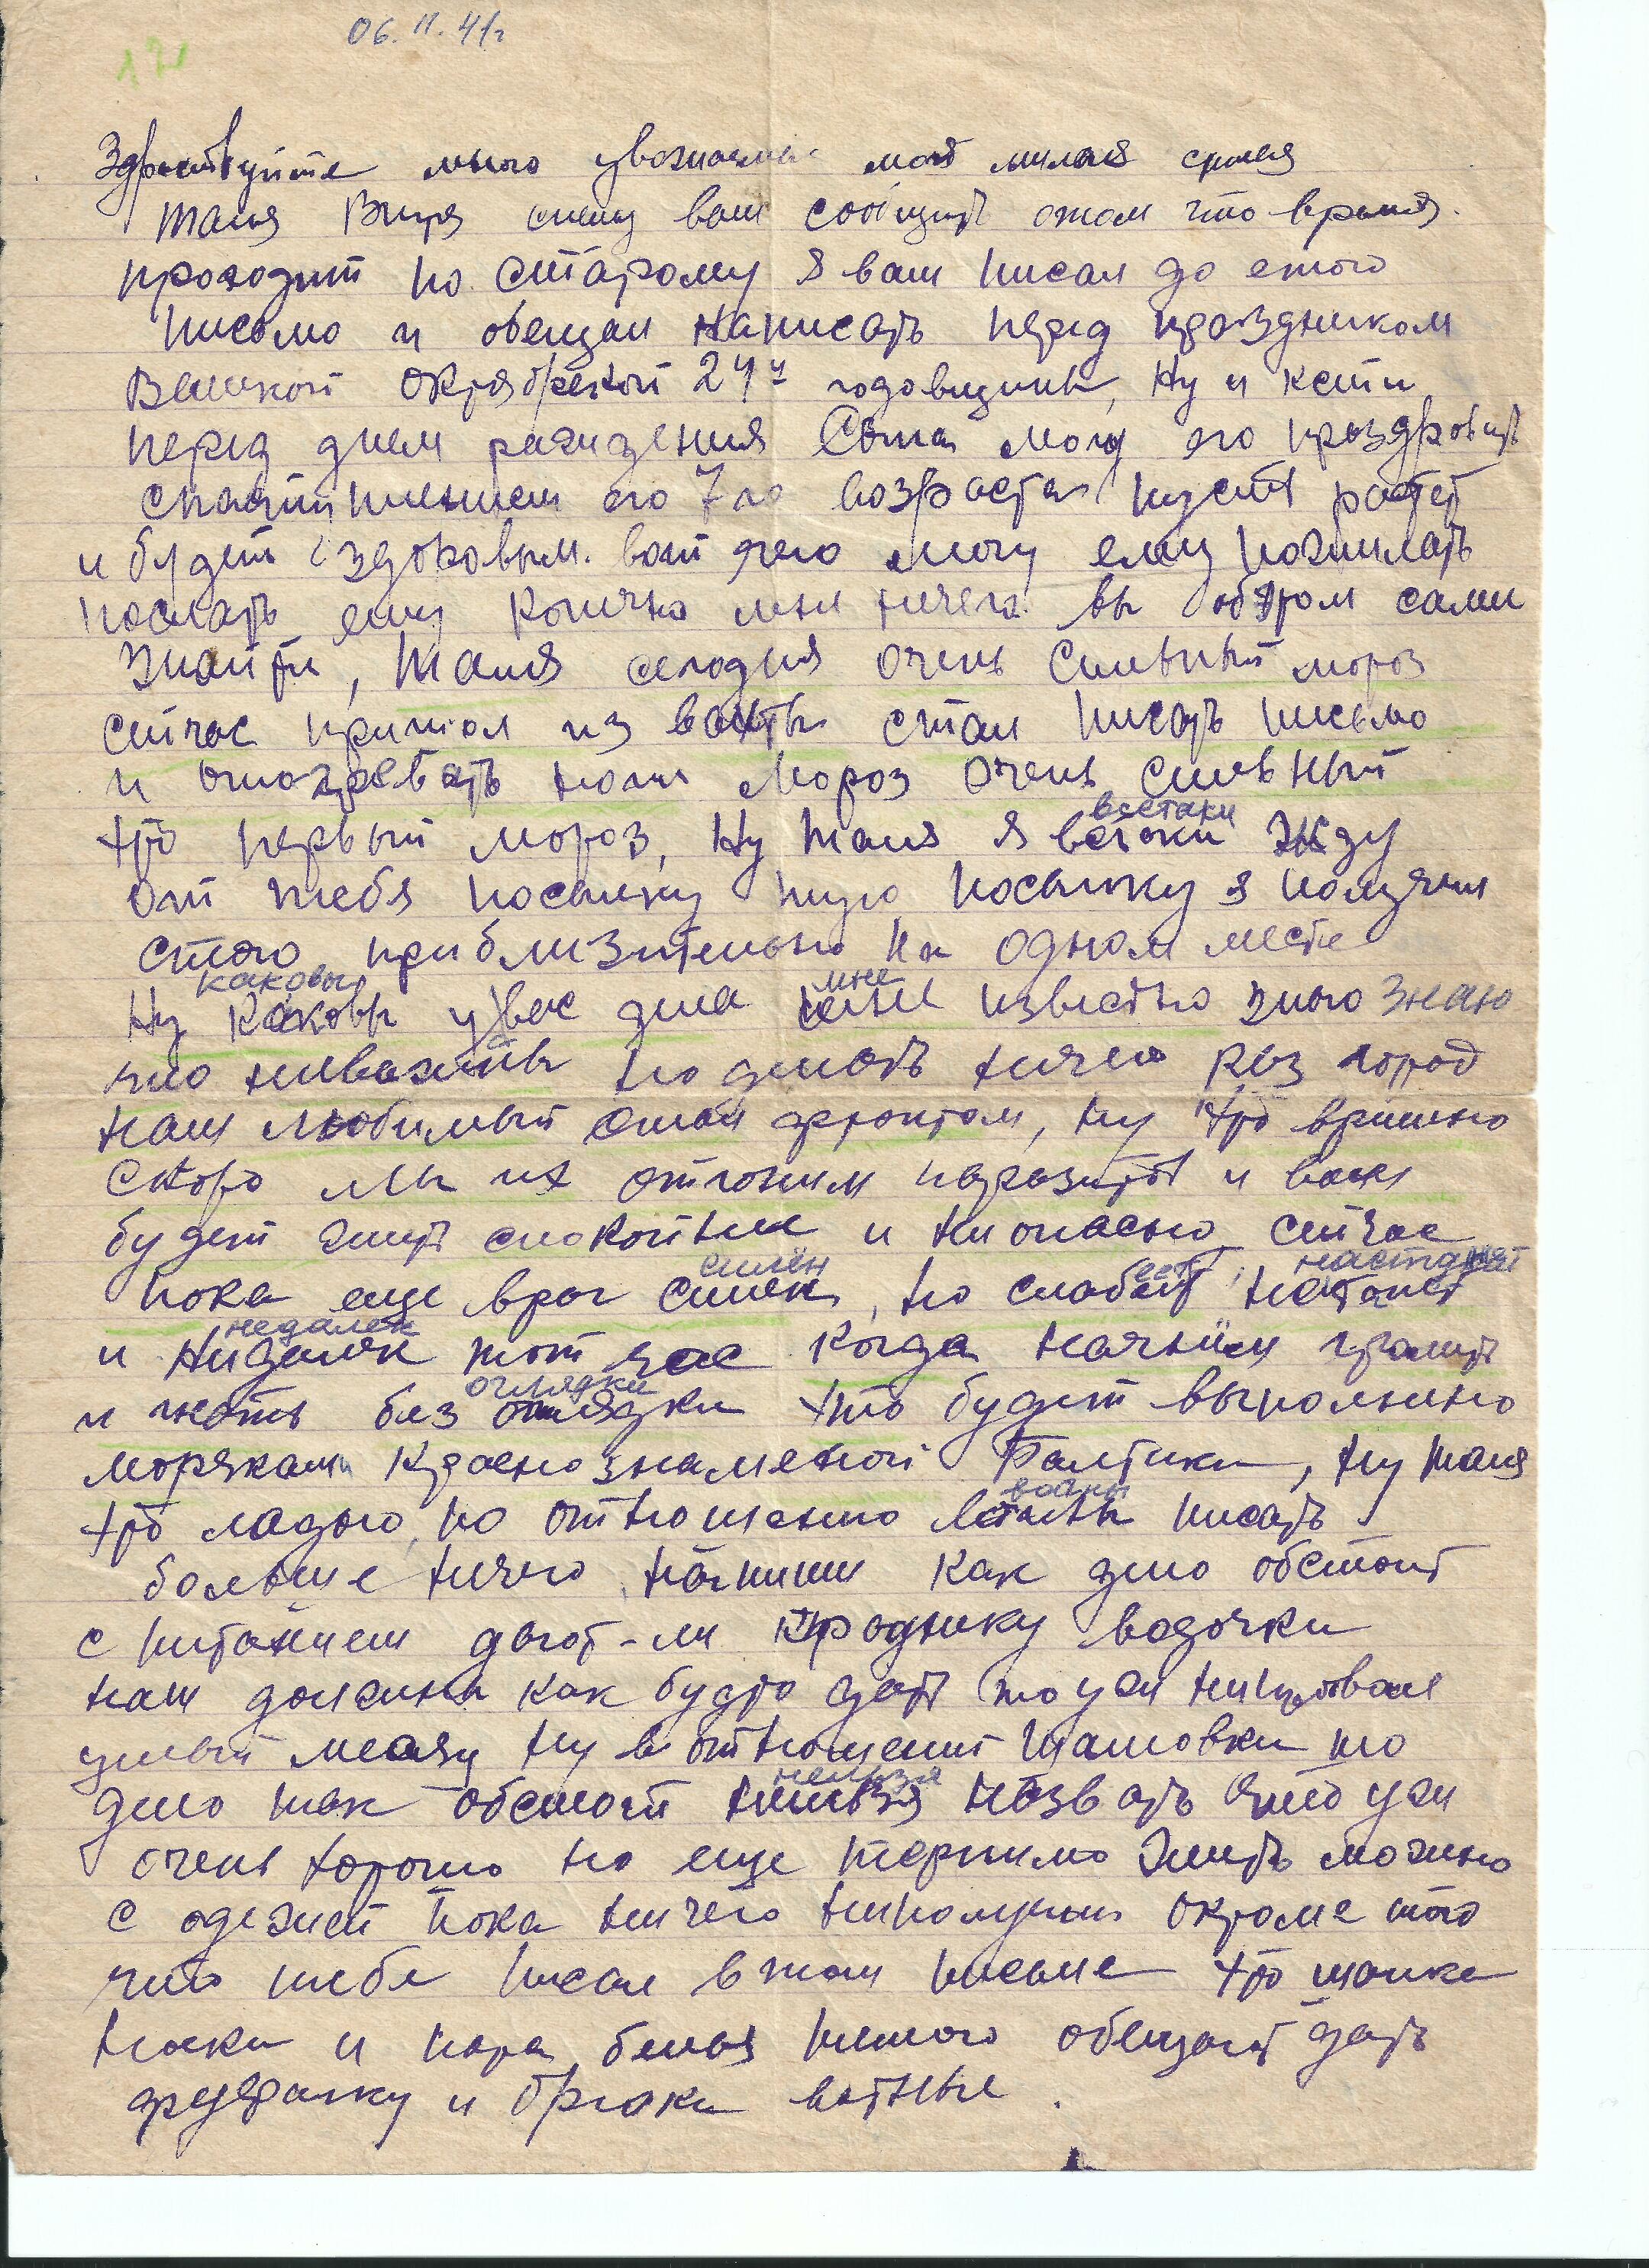 06.11.41г
Здраствуйте много уважаемые моя милая семья
Таня Витя спешу вам сообщить отом что время
проходит по старому я вам писал до етого
письмо и обещал написать перед праздником
Великой Октябрской 24й годовщины, Ну и кстати
перед днем рождения Сына могу его проздровить
его 7го возраста пусть растет
и будет здоровым. вот чего могу ему пожилать
послать ему конечно мни ничего вы об этом сами
знаити, Таня сегодня очень сильный мороз
сичас пришол из вахты стал писать письмо
и отогревать ноги Мороз очень сильный
это первый мороз, Ну Таня я всетаки жду
всетаки
от тебя посылку ту посылку я получил
стою приблизительно на одном месте
каковы мне
Ну каковы у вас дела мне известно знаю
что ниважны но делать ничего раз город
наш любимый стал фронтом, ну это временно
скоро мы их отгоним паразитов и вам
будет жить спокойние и ниопасно сичас
силён настанет
пока еще враг силен, но слабеет настанет
недалёк
и нидалек тот час когда начнём гулять
оглядки
и жить без оглядки это будет выполнино
моряками Краснознаменой Балтики, ну Таня
войны
это ладно, по отношению войны писать
больше ничего напиши как дело обстоит
с питанием дают-ли к празднику водочки
нам должны как будто дать то уж нипробовал
целый месяц ну в отношении Шамовки то
нельзя
дело так обстоит нильзя назвать что уж
очень хорошо но еще терпимо жить можно
с одежей пока ничего ниполучил окромя того
что тебе писал в том письме это шапка
носки и пара белья тёплого обещают дать
фуфайку и брюки ватные.